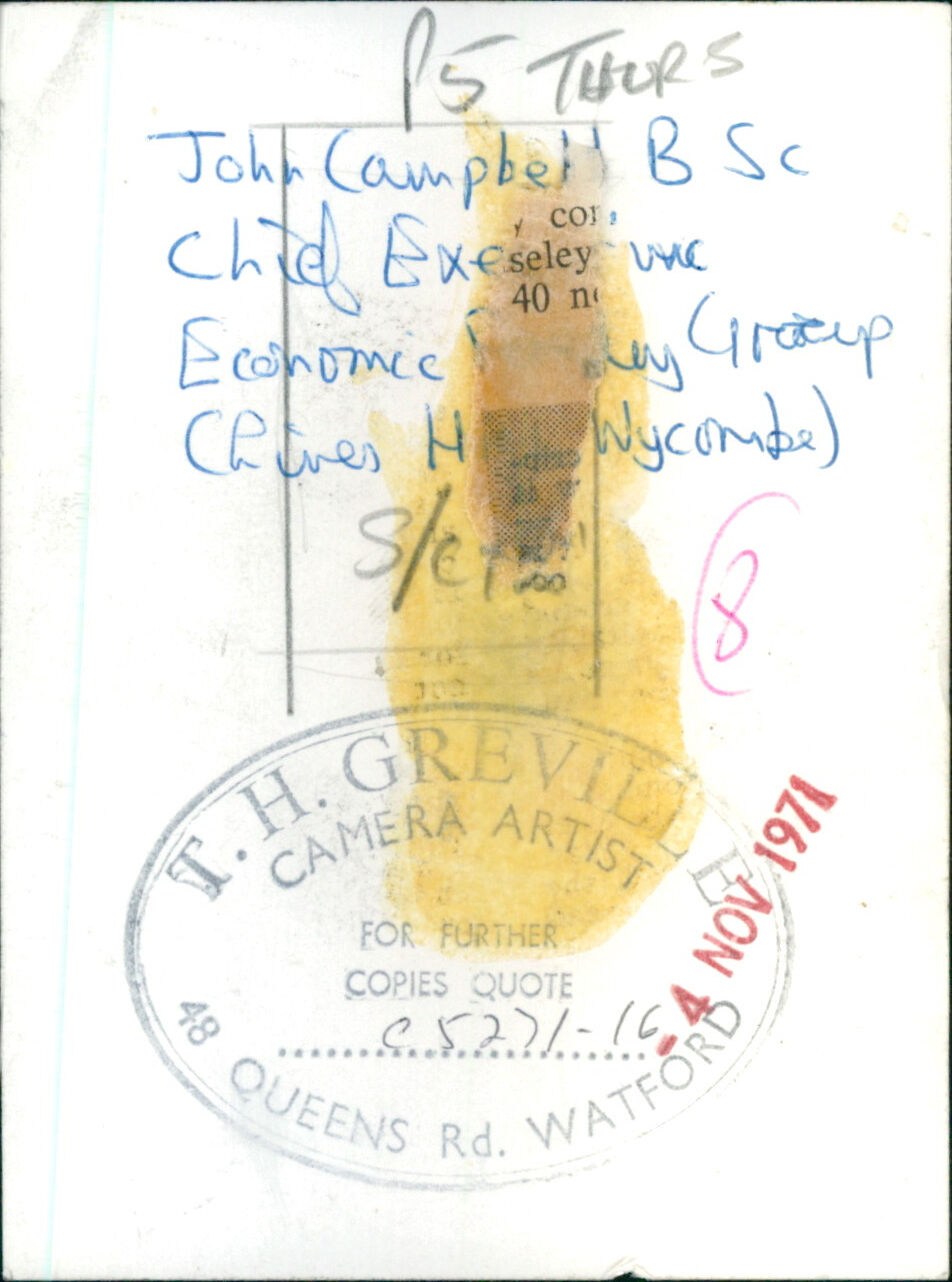 P5 THURS
John Campbell B Sc
Chief
Economic Group
(Chines H Wycombe)
seley
40
S/C
8
T. H. GREVILLE
CAMERA ARTIST
FOR FURTHER
COPIES QUOTE
C5271-16
48 QUEENS Rd. WATFORD
-4 NOV 1971